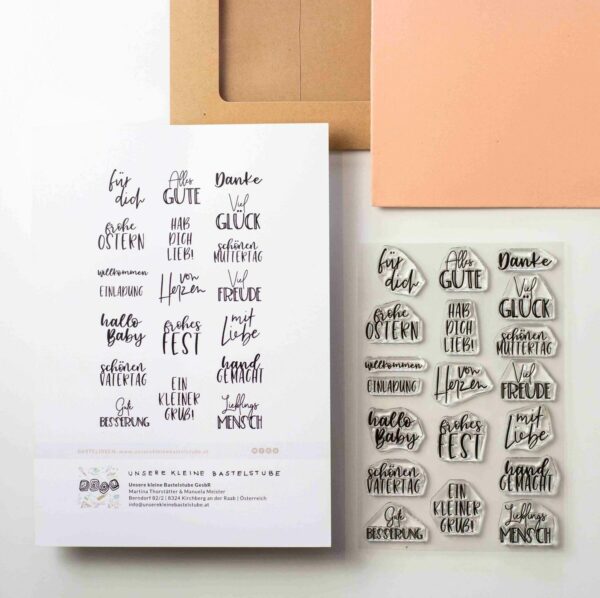 für
dich
Alles
GUTE
Danke
Viel
GLÜCK
frohe
OSTERN
HAB
DICH
LIEB!
schönen
MUTTERTAG
willkommen
EINLADUNG
von
Herzen
Viel
FREUDE
hallo
Baby
frohes
FEST
mit
Liebe
schönen
VATERTAG
EIN
KLEINER
GRUß!
hand
GEMACHT
Gute
BESSERUNG
Lieblings
MENSCH
BASTELIDEEN: www.unserekleinebastelstube.at
UNSERE KLEINE BASTELSTUBE
Unsere kleine Bastelstube GesbR
Martina Thorstätter & Manuela Meister
Berndorf 82/2 | 8324 Kirchberg an der Raab | Österreich
info@unserekleinebastelstube.at
für
dich
Alles
GUTE
Danke
Viel
GLÜCK
frohe
OSTERN
HAB
DICH
LIEB!
schönen
MUTTERTAG
willkommen
EINLADUNG
von
Herzen
Viel
FREUDE
hallo
Baby
frohes
FEST
mit
Liebe
schönen
VATERTAG
EIN
KLEINER
GRUß!
hand
GEMACHT
Gute
BESSERUNG
Lieblings
MENSCH